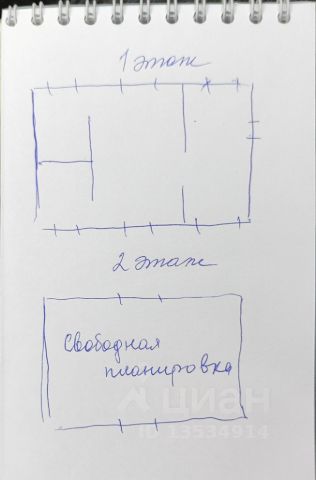 1 этаж
2 этаж
Свободная
планировка
ЦИАН
ID 13534914